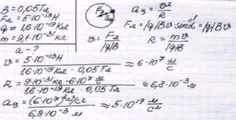 B = 0,05Тл
Fл = 5·10⁻¹³Н
q = 1,6·10⁻¹⁹Кл
m = 9,1·10⁻³¹кг
a - ?
Fл
aц = v²/R
Fл = |q|Bv sinα = |q|Bv
v = Fл/|q|B
R = mv/|q|B
v = 5·10⁻¹³Н / 1,6·10⁻¹⁹Кл · 0,05Тл ≈ 6·10⁷ м/с
R = 9·10⁻³¹кг · 6·10⁷ м/с / 1,6·10⁻¹⁹Кл · 0,05Тл ≈ 6,8·10⁻³ м
aц = (6·10⁷ м/с)² / 6,8·10⁻³ м ≈ 5·10¹⁷ м/с²